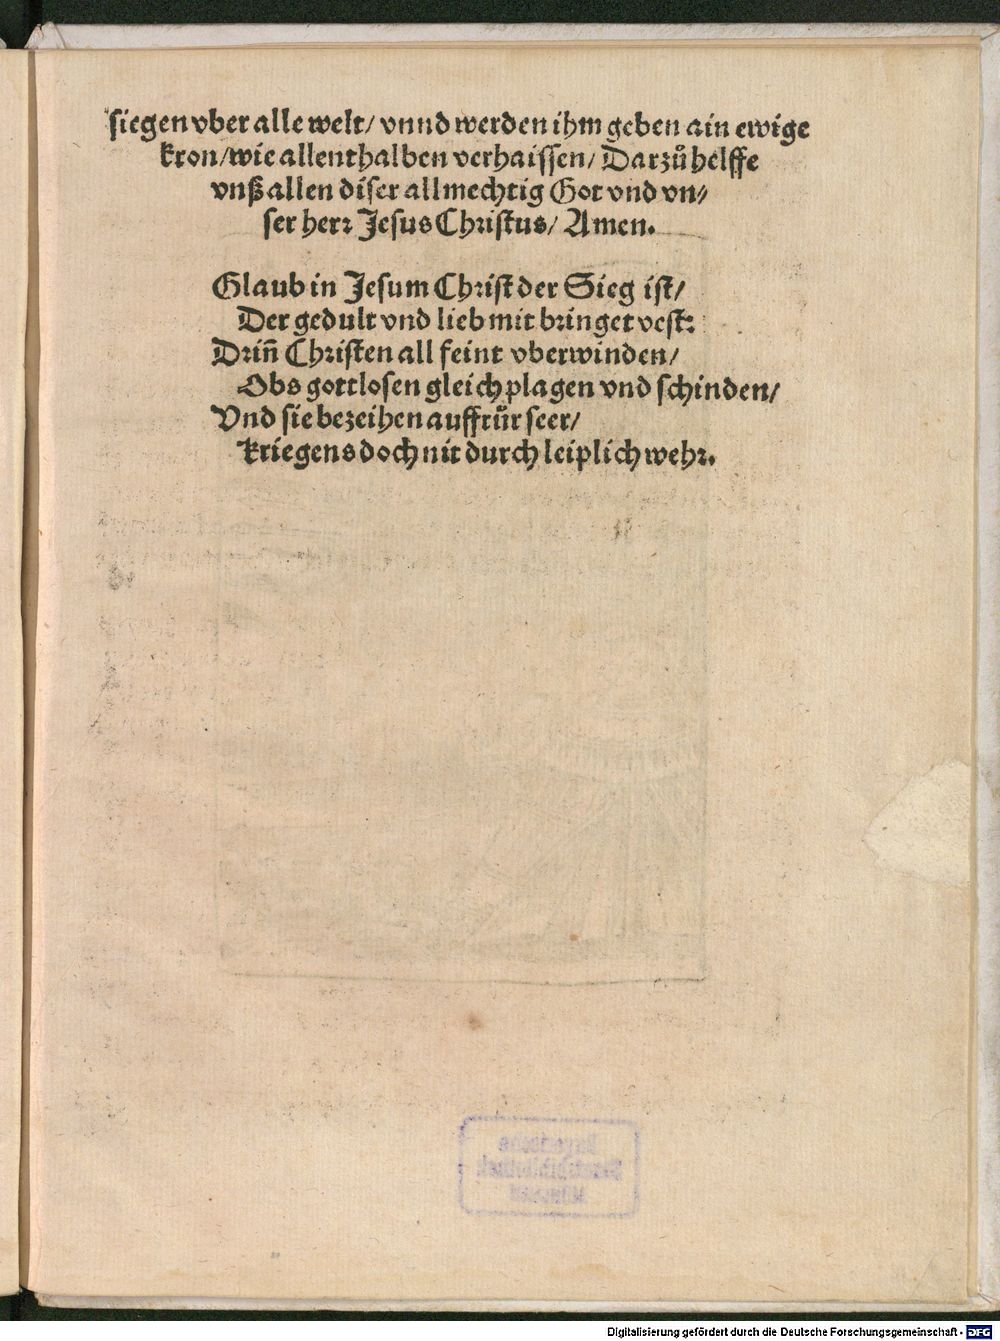 siegen vber alle welt/ vnnd werden ihm geben ain ewige
kron/wie allenthalben verhaissen/ Darzů helffe
vnß allen diser allmechtig Got vnd vn⸗
ser herr Jesus Christus/ Amen.
Glaub in Jesum Christ der Sieg ist/
Der gedult vnd lieb mit bringet vest:
Drin̄ Christen all feint vberwinden/
Obs gottlosen gleich plagen vnd schinden/
Vnd sie bezeihen auffrůr seer/
kriegens doch nit durch leiplich wehr.
Bayerische
Staatsbibliothek
München
Digitalisierung gefördert durch die Deutsche Forschungsgemeinschaft - DFG